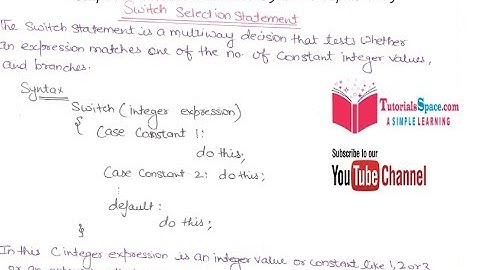 Switch Selection Statement
The Switch statement is a multiway decision that tests whether
an expression matches one of the no. of Constant integer values,
and branches.
Syntax
Switch (integer expression)
{ Case Constant 1:
do this;
Case Constant 2: do this;
:
default:
do this;
}
TutorialsSpace.com
A SIMPLE LEARNING
Subscribe to our
YouTube Channel
In this C integer expression is an integer value or constant like 1, 2 or 3